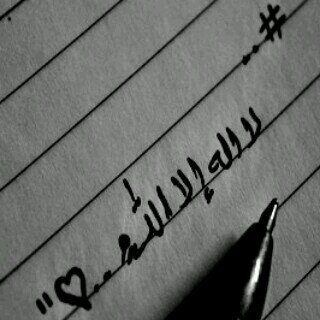 #..
لا اله إلا الله ..♡"